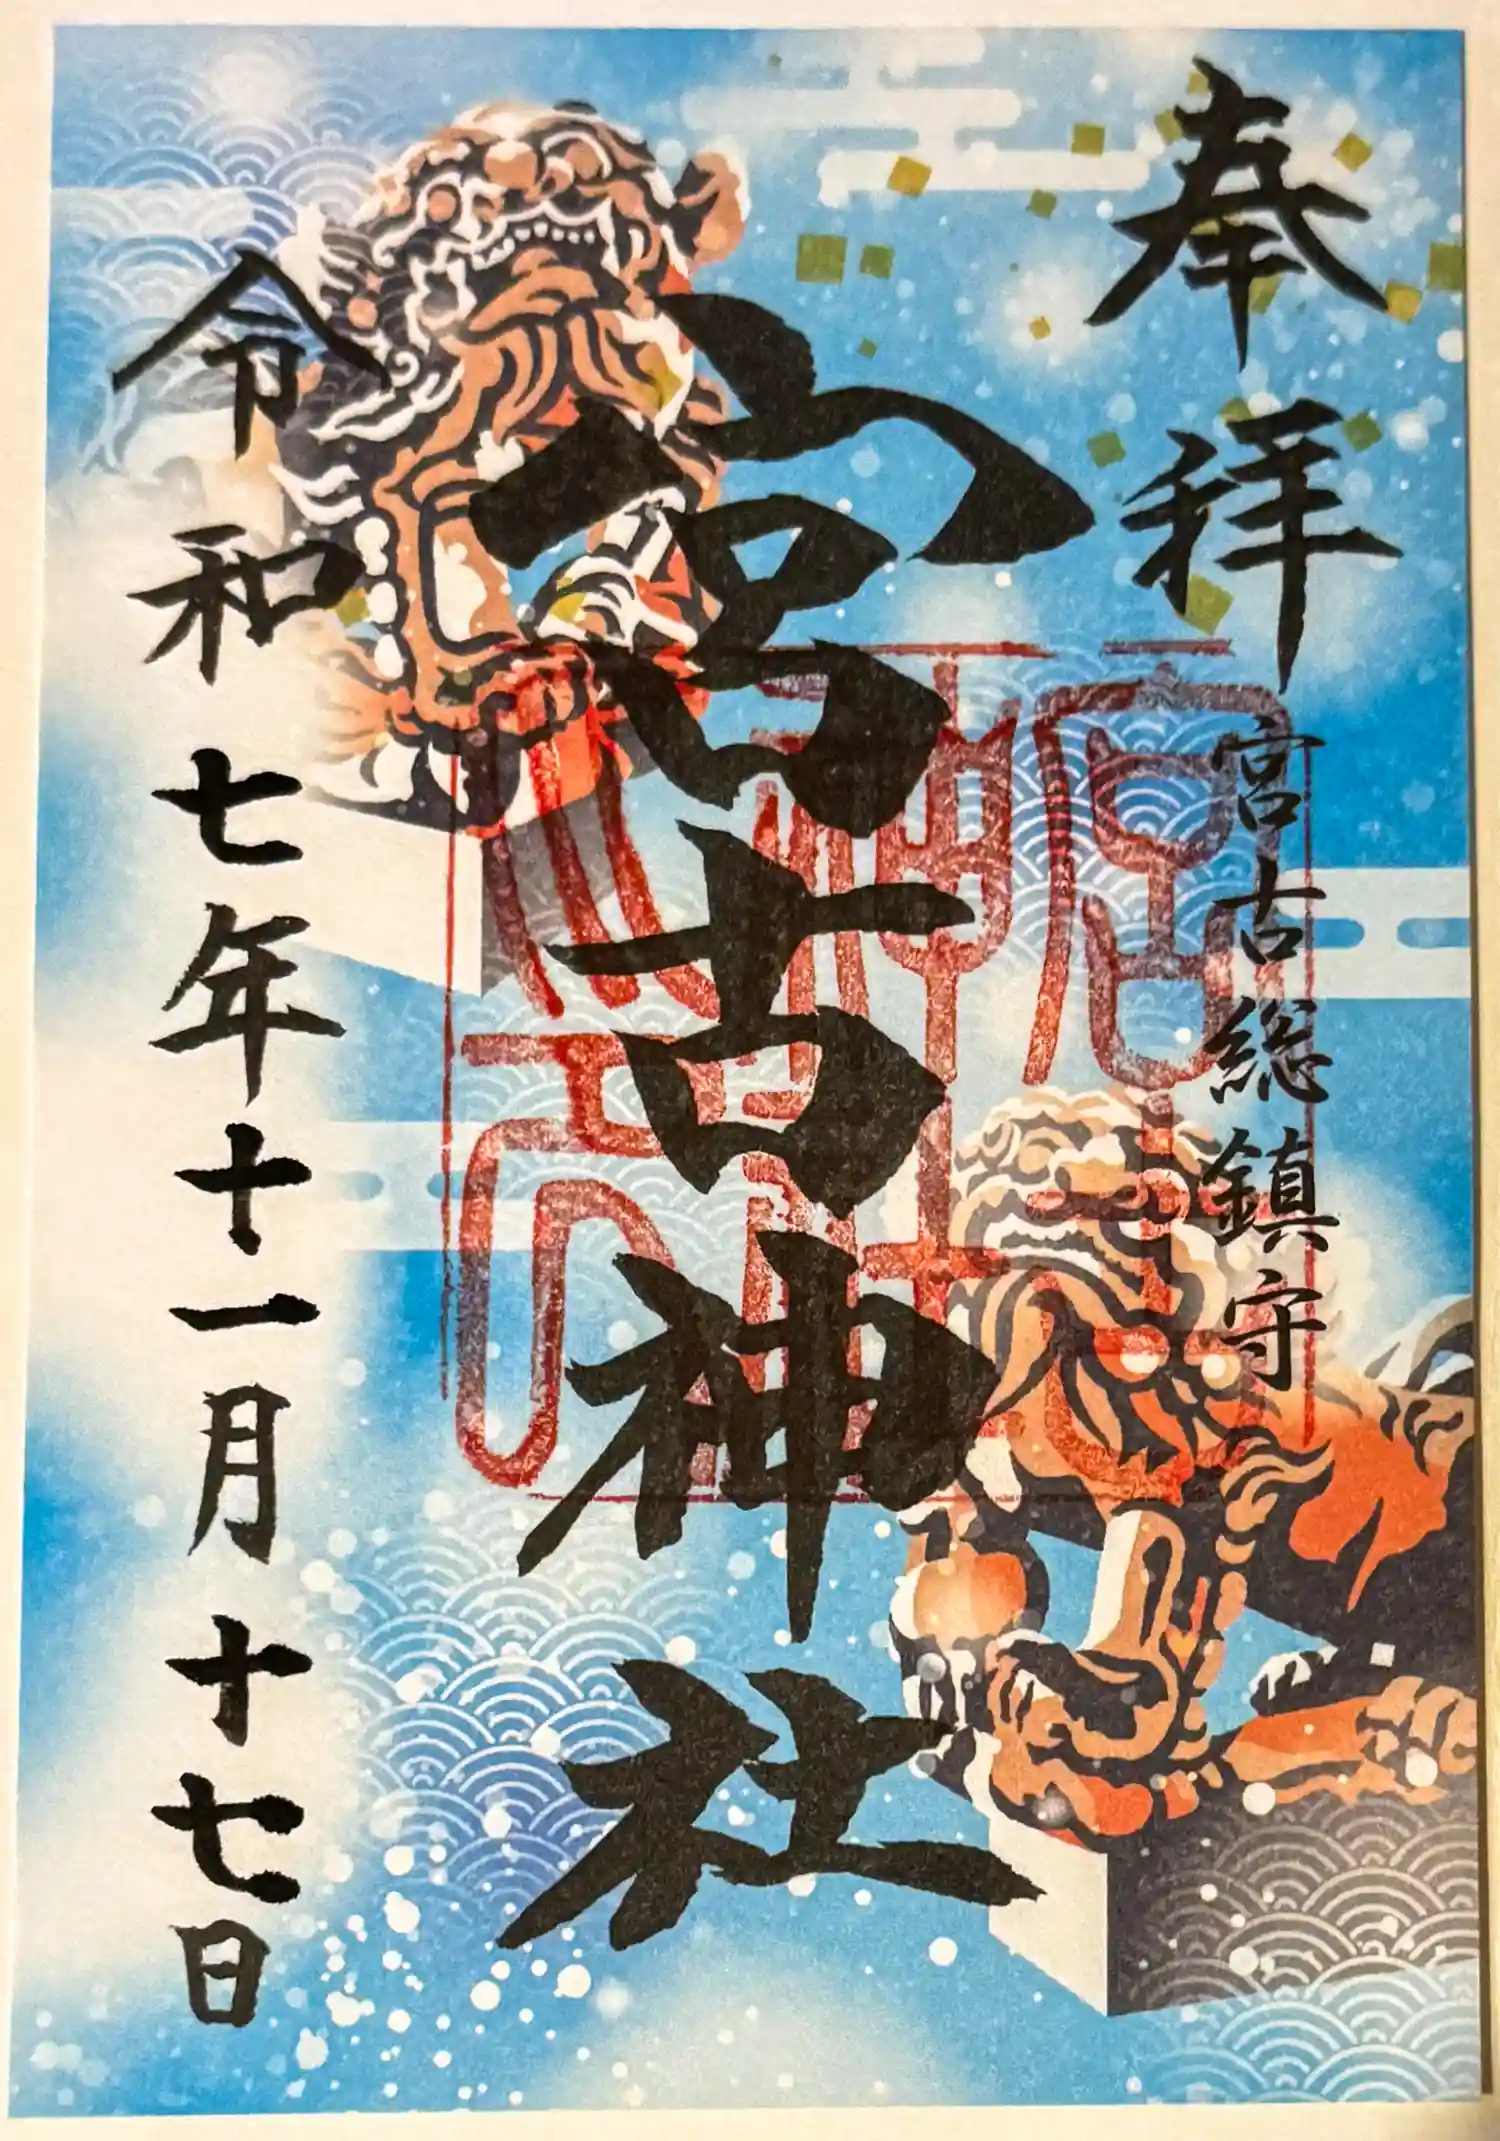 奉拝
宮古総鎮守
宮古神社
令和七年十一月十七日